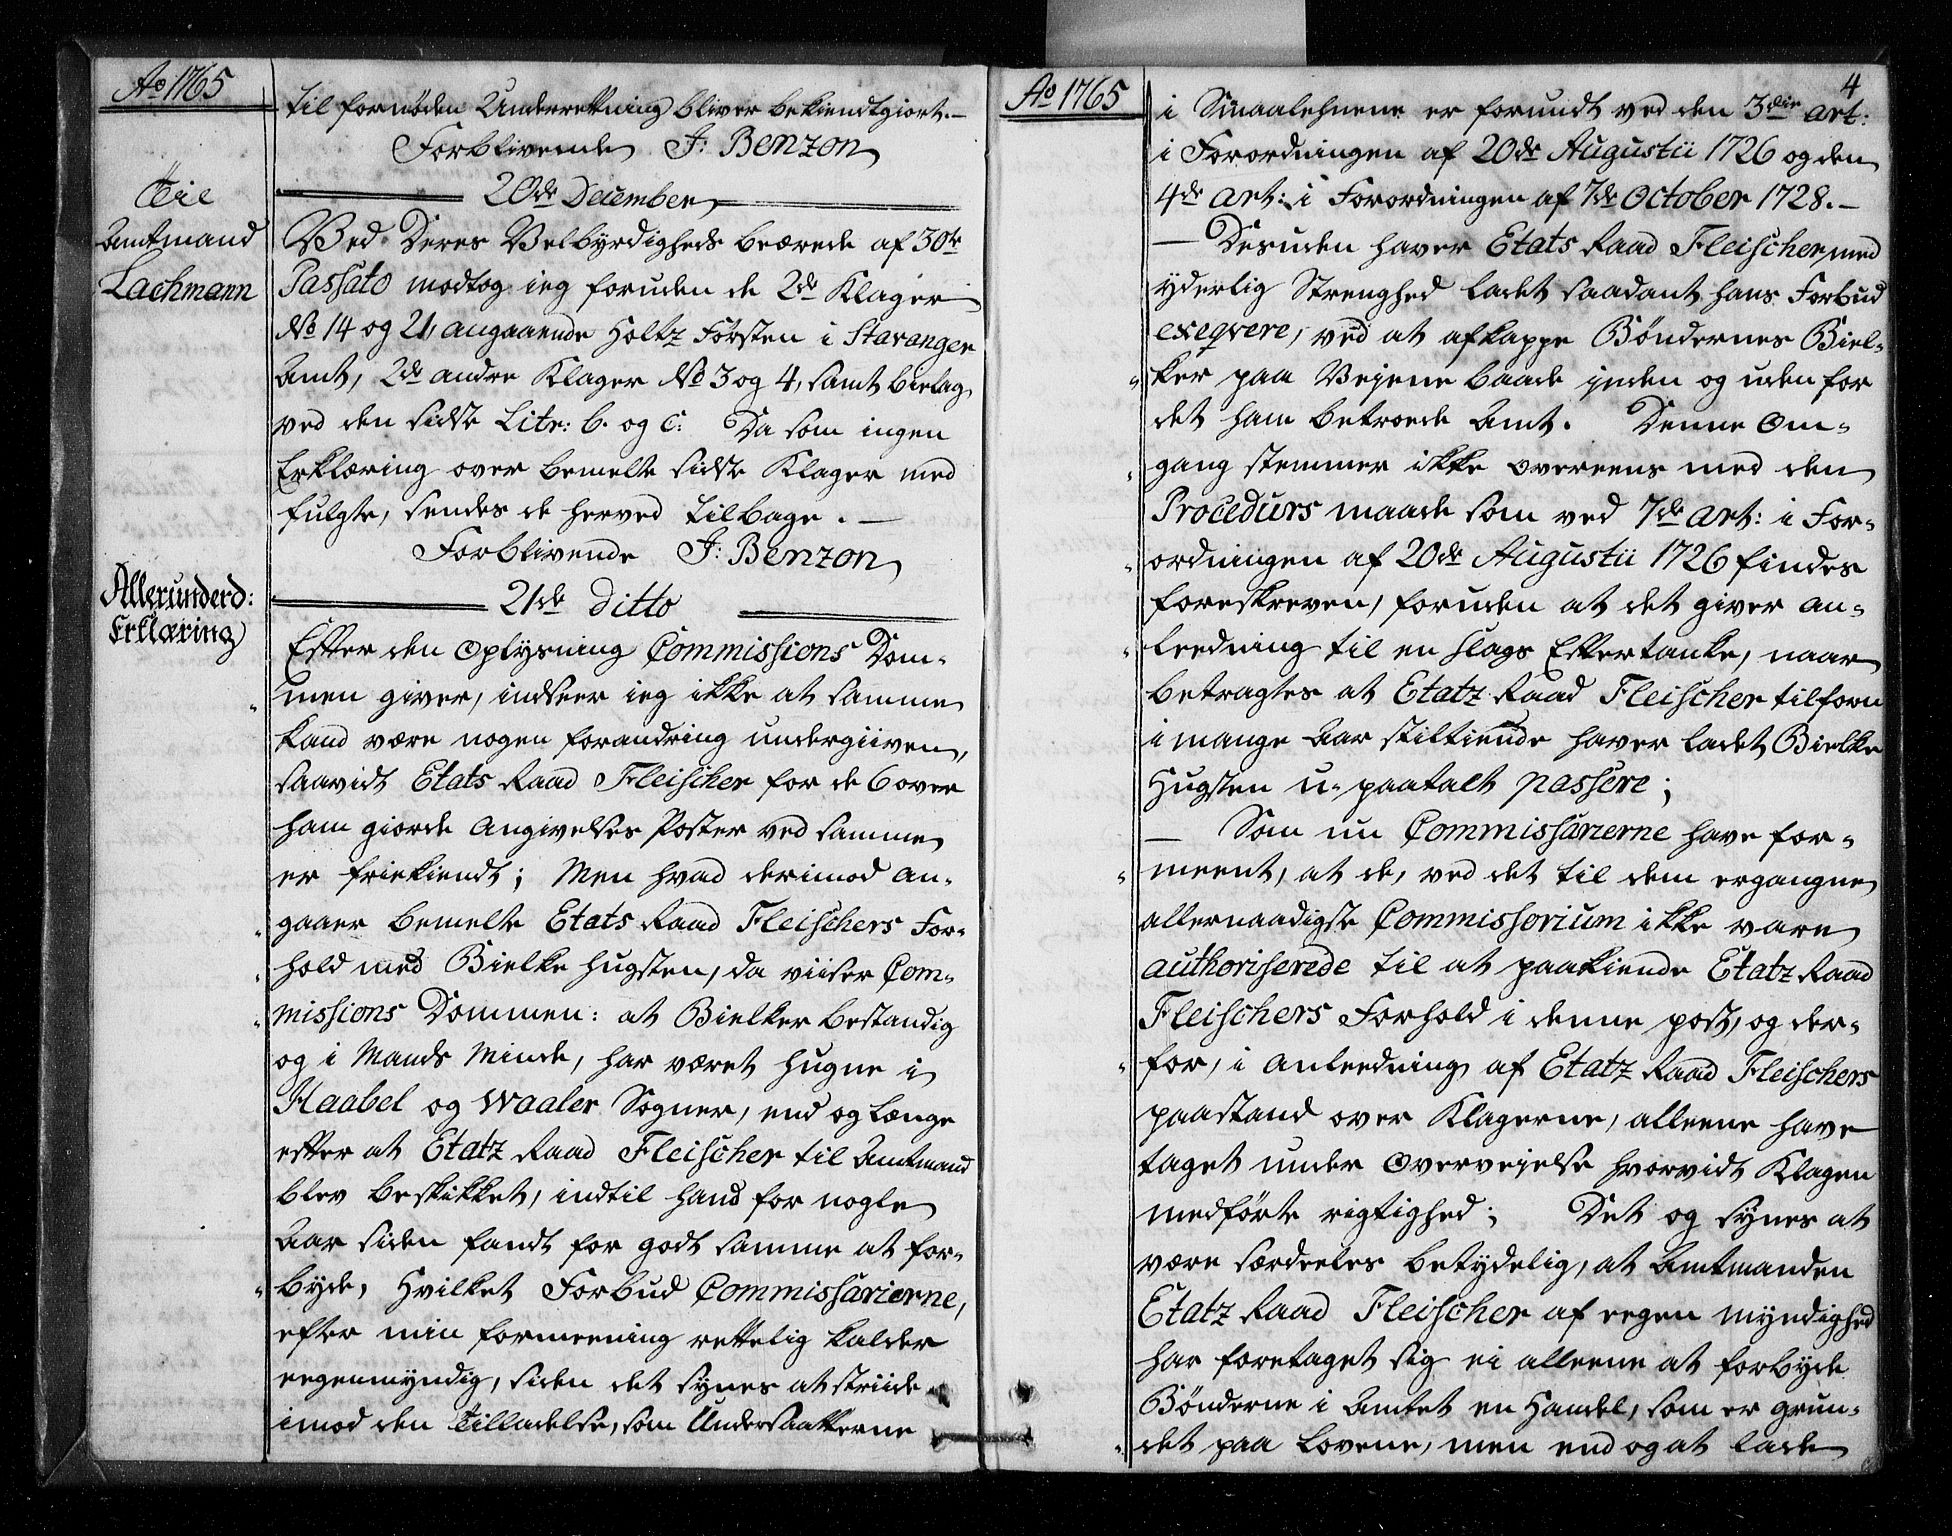 Ao 1765
til fornøden Underretning bliver bekiendtgiort.—
Forblivende J: Benzon
20de December
Til
Amtmand
Lachmann
Ved Deres Velbyrdigheds beærede af 30te
Passato modtog ieg foruden de 2de Klager
No 14 og 21, angaaende Holtz Försten i Stavanger
Amt, 2de andre Klager No 3 og 4, samt bielag
ved den sidste Litr: b. og c: Da som ingen
Erklæring over bemelte sidste Klager med
fulgte, sendes de herved tilbage.—
Forblivende J: Benzon
21de Ditto
Allerunderd:
Erklæring
Efter den Oplysning Commissions Dom-
men giver, indseer ieg ikke at samme
kand være nogen forandring undergiiven,
saavidt Etats Raad Fleischer for de 6 over
ham giorde Angivelses Poster ved samme
er friekiendt; Men hvad derimod an-
gaaer bemelte Etats Raad Fleischers For-
hold med Bielke Hugsten, da viiser Com-
missions Dommen: at Bielker bestandig
og i Mands Minde, har været hugne i
Haabel og Waaler Sogner, end og længe
efter at Etatz Raad Fleischer til Amtmand
blev beskikket, indtil hand for nogle
Aar siden fandt for godt samme at for-
byde, Hvilket Forbud Commissarierne,
efter min formeening rettelig kalder
eegenmyndig, siden det synes at striide
imod den Tilladelse, som Undersaatterne
Ao 1765
4
i Smaalehnene er forundt ved den 3die Art:
i Forordningen af 20de Augustii 1726 og den
4de Art: i Forordningen af 7de October 1728.—
— Desuden haver Etats Raad Fleischer, med
yderlig Strenghed ladet saadant hans Forbud
exeqvere, ved at afkappe Bøndernes Biel-
ker paa Vejene baade inden og uden for
det ham betroede Amt. Denne Om-
gang stemmer ikke overeens med den
Procedurs maade som ved 7de Art: i For-
ordningen af 20de Augustii 1726 findes
foreskreven, foruden at det giver an-
leedning til en slags Eftertanke, naar
betragtes at Etatz Raad Fleischer tilforn
i mange Aar stiltiende haver ladet Bielke
Hugsten u-paatalt passere;
— Som nu Commissarierne have for-
meent, at de, ved det til dem ergangne
allernaadigste Commissorium ikke vare
authoriserede til at paakiende Etatz Raad
Fleischers Forhold i denne post, og der-
for, i anleedning af Etatz Raad Fleischers
paastand over Klagerne, alleene have
taget under Overvejelse hvorvidt Klagen
medförte rigtighed; Det og synes at
være særdeeles betydelig, at Amtmanden
Etatz Raad Fleischer af eegen myndighed
har foretaget sig ei alleene at forbyde
Bønderne i Amtet en Handel, som er grun-
det paa Lovene, men end og at lade